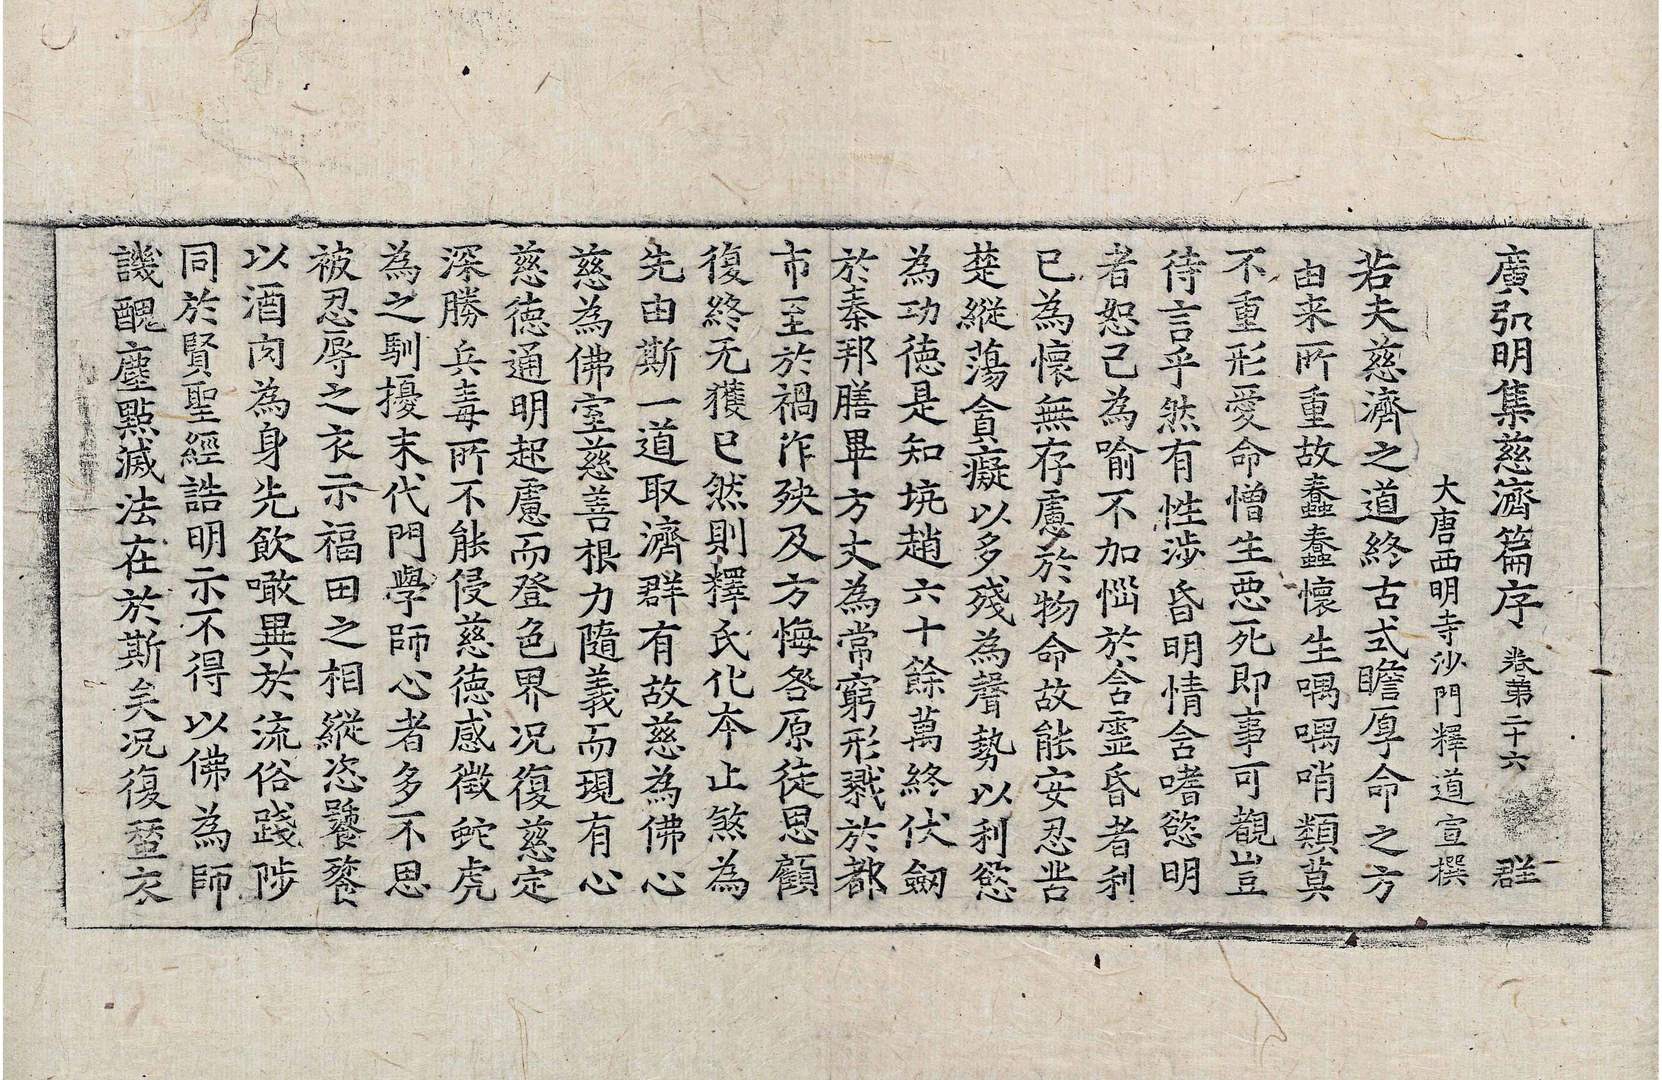 廣弘明集慈濟篇序 卷第二十六 群
大唐西明寺沙門釋道宣撰
若夫慈濟之道終古式瞻厚命之方
由来所重故蠢蠢懷生喁喁哨類莫
不重形愛命憎生惡死即事可觀豈
待言乎然有性涉昏明情含嗜慾明
者恕己為喻不加惱於含靈昏者利
己為懷無存慮於物命故能安忍苦
楚縱蕩貪癡以多殘為聲勢以利慾
為功德是知坑趙六十餘萬終伏劒
於秦邦膳畢方丈為常窮形戮於都
市至於禍作殃及方悔咎原徒思顧
復終无獲已然則釋氏化本止煞為
先由斯一道取濟群有故慈為佛心
慈為佛室慈善根力隨義而現有心
慈德通明起慮而登色界况復慈定
深勝兵毒所不能侵慈德感徵蛇虎
為之馴擾末代門學師心者多不思
被忍辱之衣示福田之相縱恣饕餮
以酒肉為身先飲噉異於流俗踐陟
同於賢聖經誥明示不得以佛為師
譏醜塵點滅法在於斯矣况復蚕衣